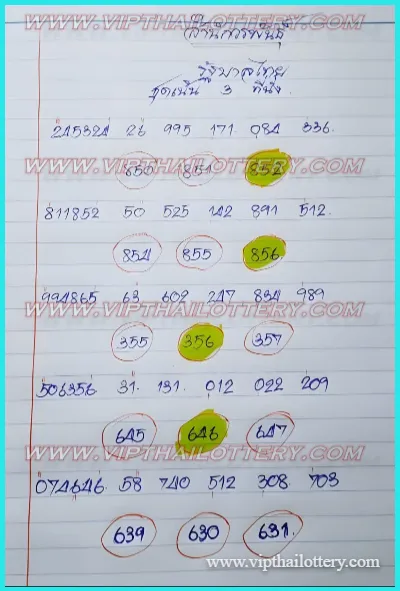 สำนักการพันธ์
รัฐบาลไทย
ชุดเน้น 3 ที่นั่ง
245324 26 995 171 084 336.
WWW.VIPTHAILOTTERY.COM
850 851 852
811852 50 525 142 891 512
WWW.VIPTHAILOTTERY.COM
854 855 856
994865 63 602 247 834 989
WWW.VIPTHAILOTTERY.COM
355 356 357
506356 31. 131. 012 022 209
645 646 647
WWW.VIPTHAILOTTERY.COM
074646. 58 740 512 308 703
639 630 631.
www.vipthailottery.com